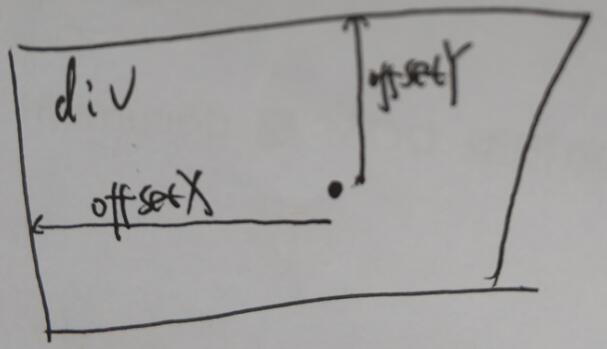 div
offsetY
offsetX